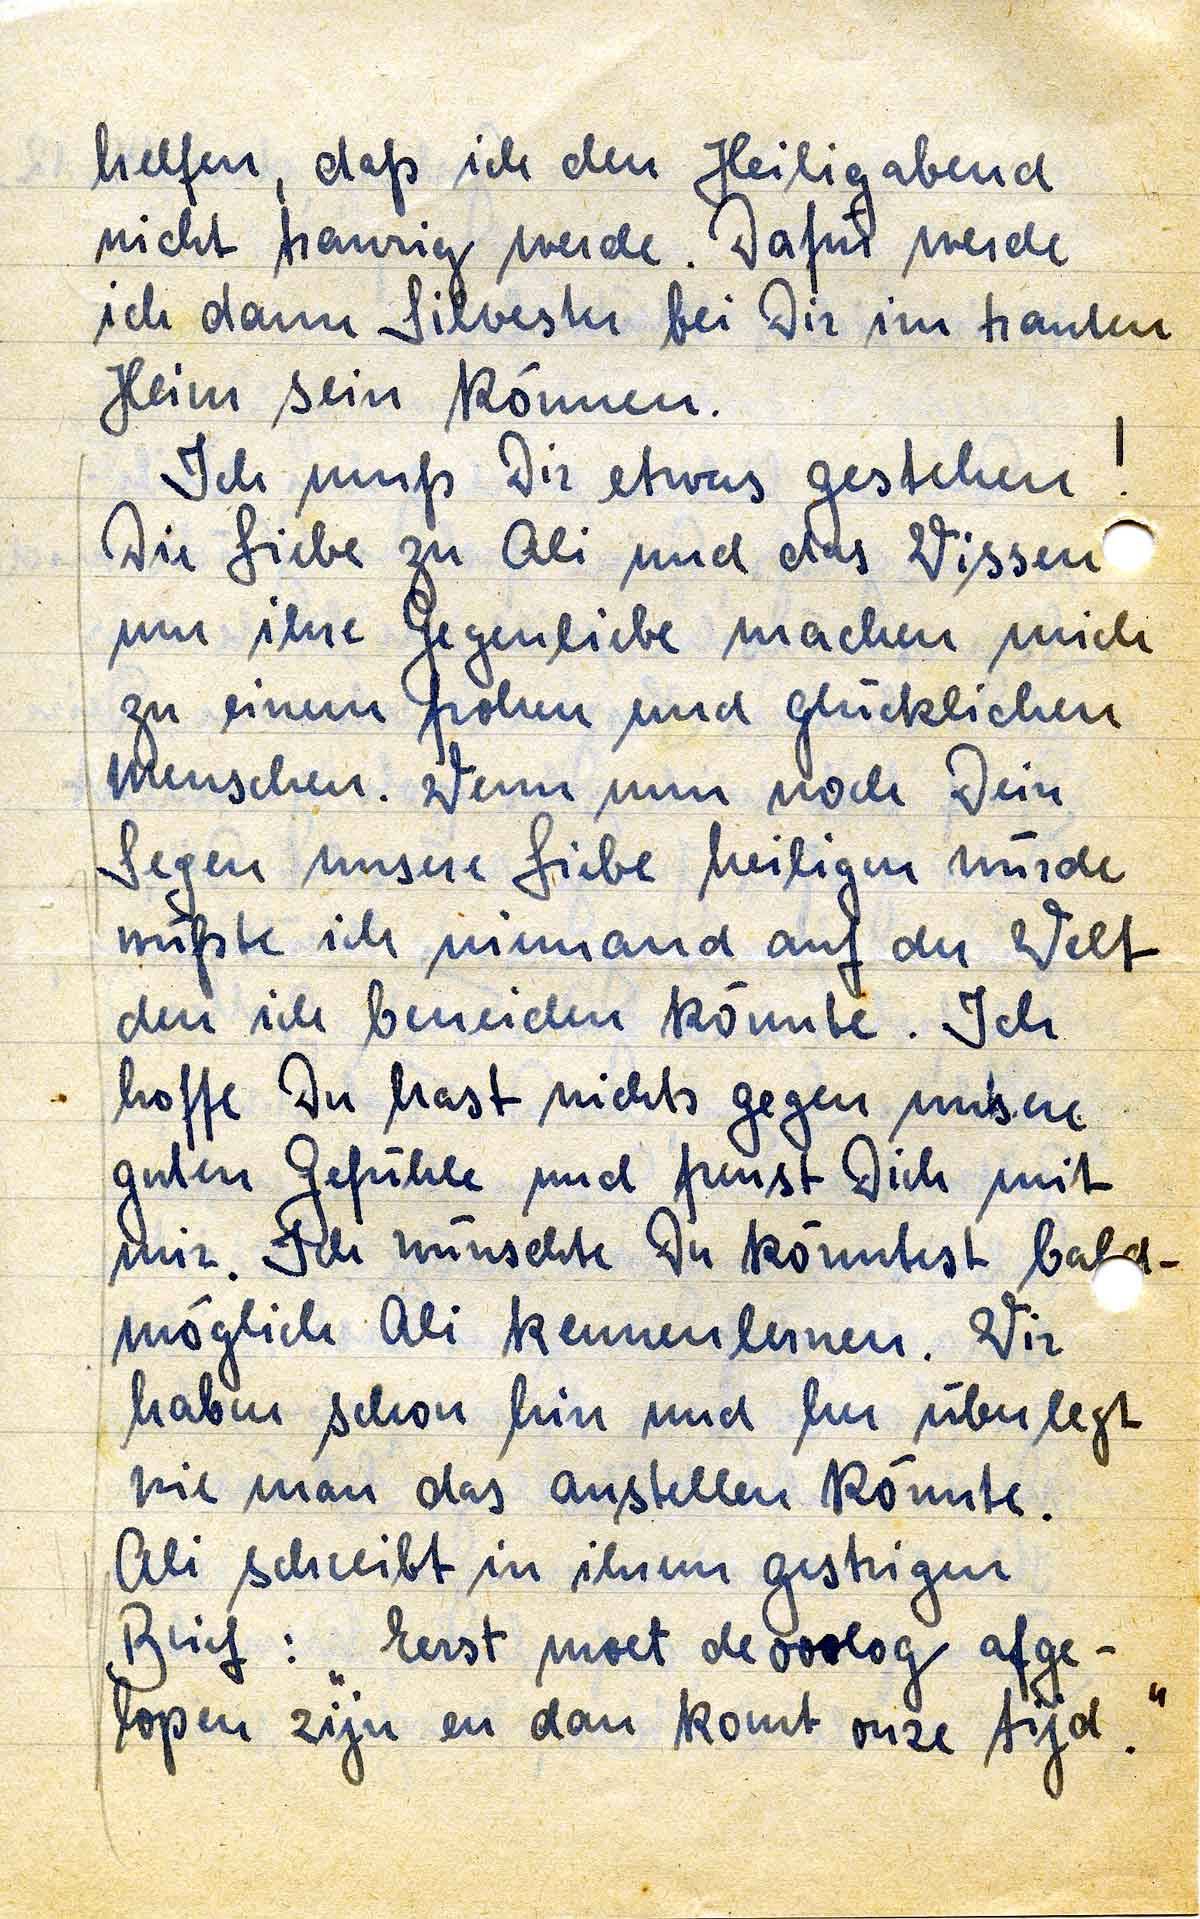 helfen, daß ich den Heiligabend
nicht traurig werde. Dafür werde
ich dann Silvester bei Dir im trauten
Heim sein können.
Ich muß Dir etwas gestehen!
Die Liebe zu Ali und das Wissen
um ihre Gegenliebe machen mich
zu einem frohen und glücklichen
Menschen. Wenn nun noch Dein
Segen unsere Liebe heiligen würde
wüßte ich niemand auf der Welt
den ich beneiden könnte. Ich
hoffe Du hast nichts gegen unsere
guten Gefühle und freust Dich mit
mir. Ich wünschte Du könntest bald-
möglich Ali kennenlernen. Wir
haben schon hin und her überlegt
wie man das anstellen könnte.
Ali schreibt in ihrem gestrigen
Brief: „Eerst moet de oorlog afge-
lopen zijn en dan komt onze tijd."